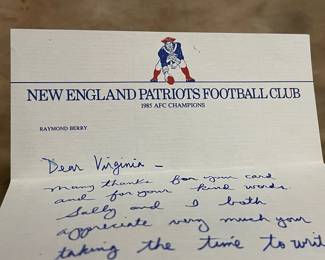 NEW ENGLAND PATRIOTS FOOTBALL CLUB
1985 AFC CHAMPIONS
RAYMOND BERRY
Dear Virginia –
Many thanks for your card
and for your kind words.
Sally and I both
appreciate very much your
taking the time to write